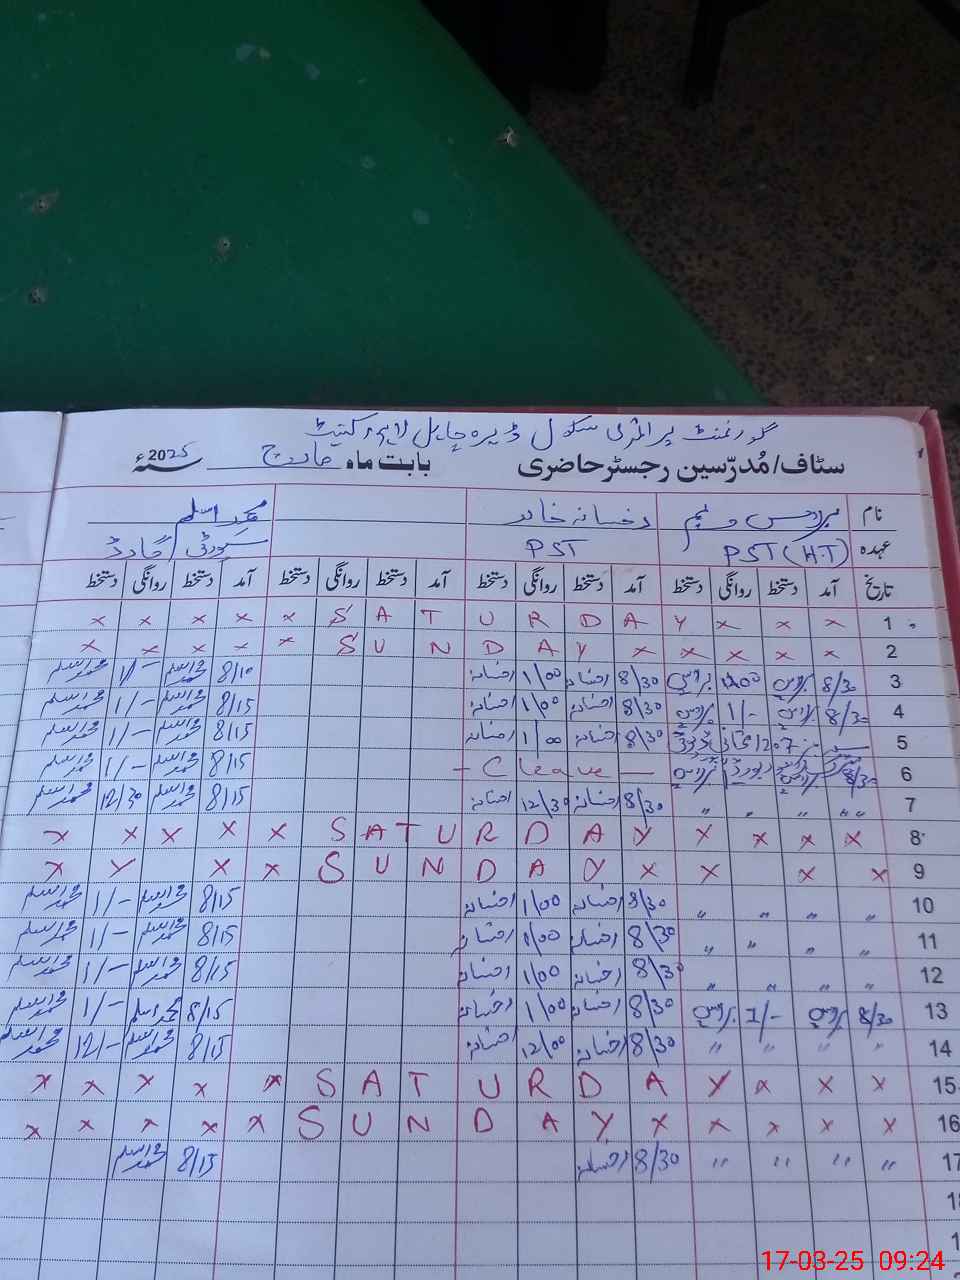 گورنمنٹ پرائمری سکول ڈیرہ چاہل لاہور کینٹ
سٹاف/مُدرّسین رجسٹر حاضری بابت ماہ مارچ سنہ 2025ء
نام رخسانہ محمد اسلم
عہدہ PST (H.T) PST سیکورٹی گارڈ
تاریخ آمد دستخط روانگی دستخط آمد دستخط روانگی دستخط آمد دستخط روانگی دستخط آمد دستخط روانگی دستخط
1 x x x S A T U R D A Y x x x x x
2 x x x x S U N D A Y x x x x x
3 8/30 8/30 رخسانہ 1/00 رخسانہ 8/10 محمد اسلم 1/- محمد اسلم
4 8/30 1/- 8/30 رخسانہ 1/00 رخسانہ 8/15 محمد اسلم 1/- محمد اسلم
5 8/30 رخسانہ 1/00 رخسانہ 8/15 محمد اسلم 1/- محمد اسلم
6 8/30 — C leave — 8/15 محمد اسلم 1/- محمد اسلم
7 〃 〃 〃 〃 8/30 رخسانہ 12/30 رخسانہ 8/15 محمد اسلم 12/30 محمد اسلم
8 x x x x S A T U R D A Y x x x x x
9 x x x x S U N D A Y x x x Y x
10 〃 〃 〃 〃 8/30 رخسانہ 1/00 رخسانہ 8/15 محمد اسلم 1/- محمد اسلم
11 〃 〃 〃 〃 8/30 رخسانہ 1/00 رخسانہ 8/15 محمد اسلم 1/- محمد اسلم
12 〃 〃 〃 〃 8/30 رخسانہ 1/00 رخسانہ 8/15 محمد اسلم 1/- محمد اسلم
13 8/30 1/- 8/30 رخسانہ 1/00 رخسانہ 8/15 محمد اسلم 1/- محمد اسلم
14 〃 〃 〃 〃 8/30 رخسانہ 12/00 رخسانہ 8/15 محمد اسلم 12/- محمد اسلم
15 x x x S A T U R D A Y x x x x x
16 x x x x x S U N D A Y x x x x x
17 〃 〃 〃 〃 8/30 رخسانہ 8/15 محمد اسلم
17-03-25 09:24